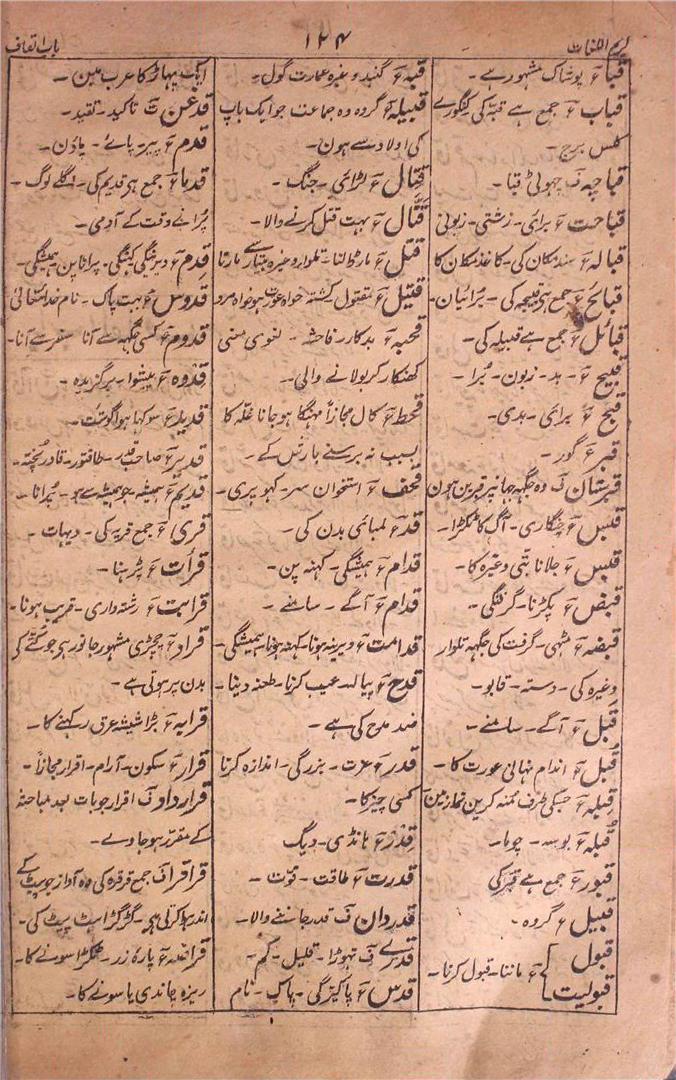 کریم اللغات ۱۲۴ باب القاف
قبا ؏ پوشاک مشہور ہے -
قباب ؏ جمع ہے قبہ کی کنگورے
کلس برج -
قباچہ ف چھوٹی قبا -
قباحت ؏ برائی - زشتی - زبونی
قبالہ ؏ سند مکان کی - کاغذ مکان کا
قبائح ؏ جمع ہی قبیحہ کی - برائیان -
قبائل ؏ جمع ہے قبیلہ کی -
قبیح ؏ - بد - زبون - برا -
قبح ؏ برائی - بدی -
قبر ؏ گور -
قبرستان ف وہ جگہہ جہانپر قبرین ہون
قبس ؏ چنگاری - آگ کا ٹکڑا -
قبس ؏ جلانا بتّی وغیرہ کا -
قبض ؏ پکڑنا - گرفتگی -
قبضہ ؏ مٹھی - گرفت کی جگہہ تلوار
وغیرہ کی - دستہ - قابو -
قَبل ؏ آگے - سامنے -
قُبل ؏ اندام نہانی عورت کا -
قِبلہ ؏ جسکی طرف مُنہ کرین نماز مین
قُبلہ ؏ بوسہ - چوما -
قبور ؏ جمع ہے قبر کی
قبیل ؏ گروہ -
قبول
قبولیت ؏ ماننا - قبول کرنا -
قبہ ؏ گنبد وغیرہ عمارت گول -
قبیلہ ؏ گروہ وہ جماعت جو ایک باپ
کی اولاد سے ہون -
قِتال ؏ لڑائی - جنگ -
قَتّال ؏ بہت قتل کرنے والا -
قتل ؏ مار ڈالنا - تلوار وغیرہ ہتیار سے مارنا
قتیل ؏ مقتول کشتہ خواہ عورت ہو خواہ مرد
قحبہ ؏ بدکار - فاحشہ - لغوی معنی
کھنکار کر بولانے والی -
قحط ؏ کال مجازاً مہنگا ہو جانا غلہ کا
بسبب نہ برسنے بارش کے -
قحف ؏ استخوان سر - کھوپری -
قد ؏ لمبائی بدن کی -
قدام ؏ ہمیشگی - کہنہ پن -
قدام ؏ آگے - سامنے -
قدامت ؏ دیرینہ ہونا - کہنہ ہونا - ہمیشگی -
قدح ؏ پیالہ عیب کرنا - طعنہ دینا -
ضد مدح کی ہے -
قدر ؏ عزت - بزرگی - اندازہ کرنا
کسی چیز کا -
قِدْر ؏ ہانڈی - دیگ
قدرت ؏ طاقت - قوت -
قدردان ف قدر جاننے والا -
قدرے ف تھوڑا - قلیل - کم -
قدس ؏ پاکیزگی - پاک - نام
ایک پہاڑ کا عرب مین -
قدغن ت تاکید - تقید -
قدم ؏ پیر - پائے - پاؤن -
قدما ؏ جمع ہی قدیم کی - اگلے لوگ -
پرانے وقت کے آدمی -
قِدم ؏ دیرینگی کہنگی - پراناپن ہمیشگی -
قدوس ؏ بہت پاک - نام خدا تعالیٰ
قدوم ؏ کسی جگہہ سے آنا سفر سے آنا -
قدوہ ؏ پیشوا - برگزیدہ -
قدید ؏ سوکھا ہوا گوشت -
قدیر ؏ صاحب قدر - طاقتور - قادر
قدیم ؏ ہمیشہ جو ہمیشہ سے ہو - پرانا -
قریٰ ؏ جمع قریہ کی - دیہات -
قرأت ؏ پڑہنا -
قرابت ؏ رشتہ داری - قریب ہونا -
قراد ؏ چچڑی مشہور جانور ہی جو کتے کی
بدن پر ہوتی ہے -
قرابہ ؏ بڑا شیشہ عرق رکہنے کا -
قرار ؏ سکون - آرام - اقرار مجازاً -
قرارداد ف اقرار جو بات بعد مباحثہ
کے مقرر ہو جاوے -
قراقر ف جمع قرقرہ کی وہ آواز جو پیٹ کے
اندر ہوا کرتی ہی - گڑگڑاہٹ پیٹ کی -
قراضہ ؏ پارہ زر - ٹکڑا سونے کا -
ریزہ چاندی یا سونے کا -